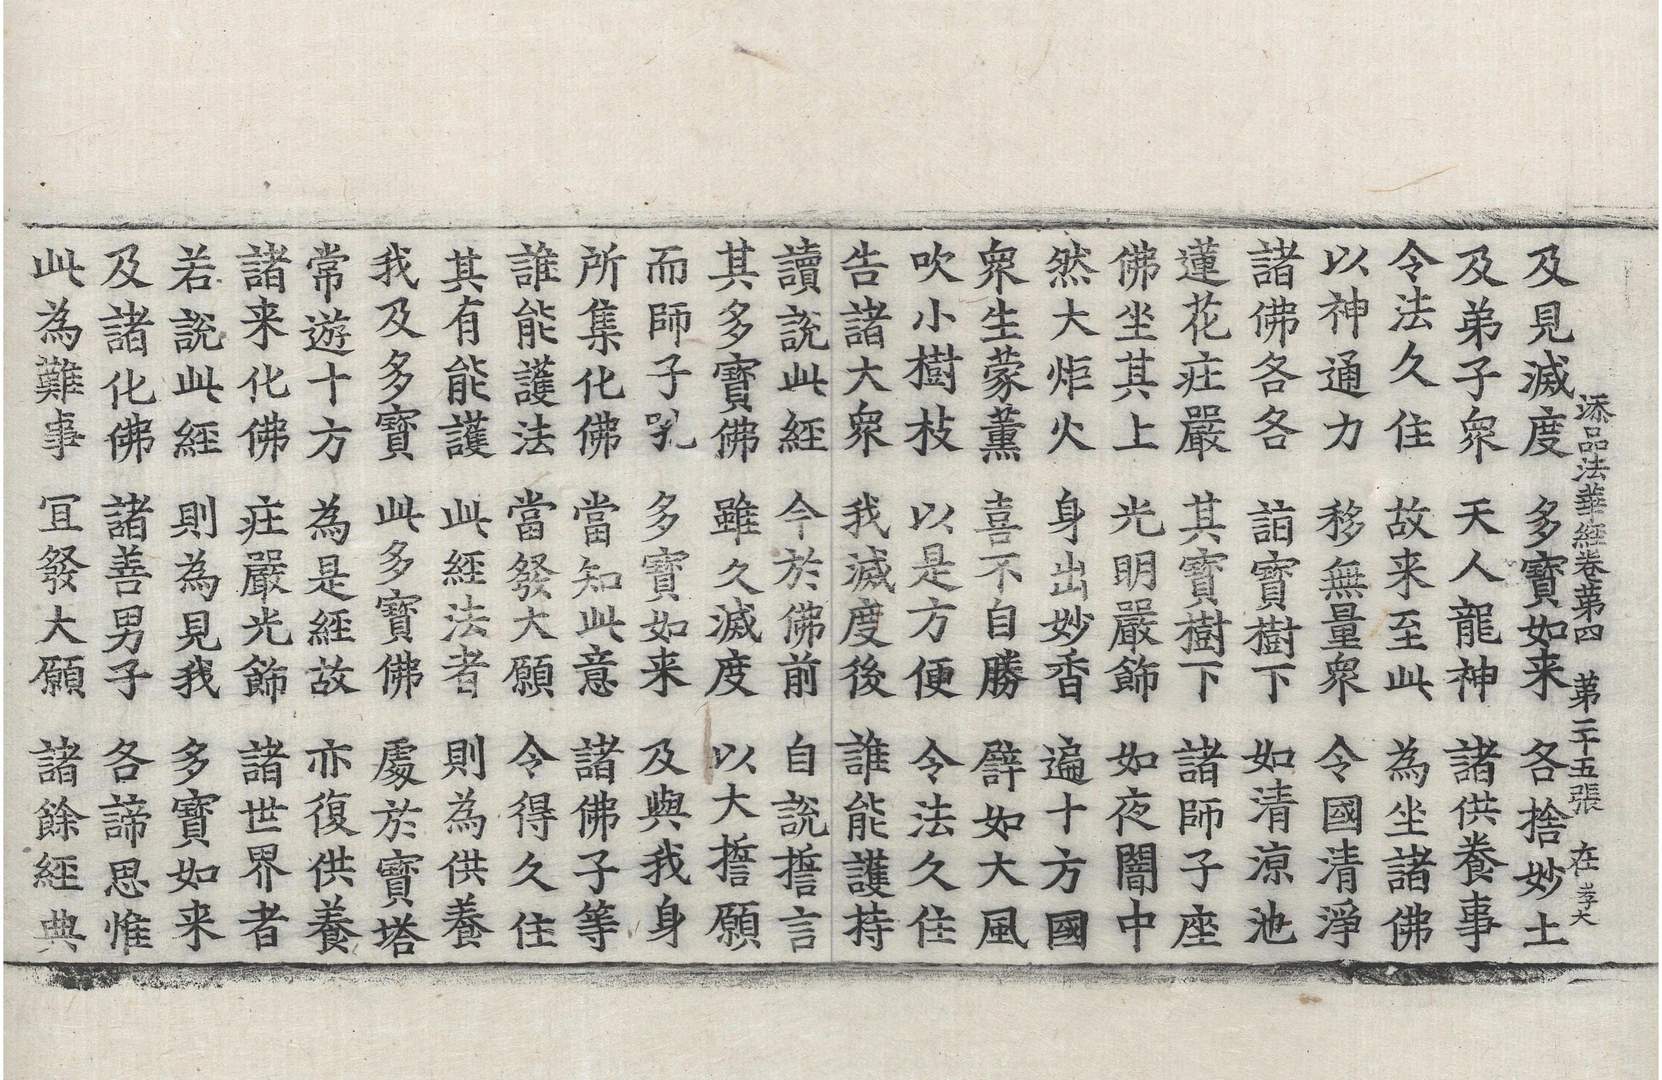 添品法華経卷苐四　苐二十五張　在　李大
及見滅度　多寶如来　各捨妙土
及弟子衆　天人龍神　諸供養事
令法久住　故来至此　為坐諸佛
以神通力　移無量衆　令國清淨
諸佛各各　詣寶樹下　如清涼池
蓮花庄嚴　其寶樹下　諸師子座
佛坐其上　光明嚴飾　如夜闇中
然大炬火　身出妙香　遍十方國
衆生蒙薰　喜不自勝　譬如大風
吹小樹枝　以是方便　令法久住
告諸大衆　我滅度後　誰能護持
讀說此經　今於佛前　自說誓言
其多寶佛　雖久滅度　以大誓願
而師子吼　多寶如来　及與我身
所集化佛　當知此意　諸佛子等
誰能護法　當發大願　令得久住
其有能護　此經法者　則為供養
我及多寶　此多寶佛　處於寶塔
常遊十方　為是經故　亦復供養
諸来化佛　庄嚴光飾　諸世界者
若說此經　則為見我　多寶如来
及諸化佛　諸善男子　各諦思惟
此為難事　冝發大願　諸餘經典